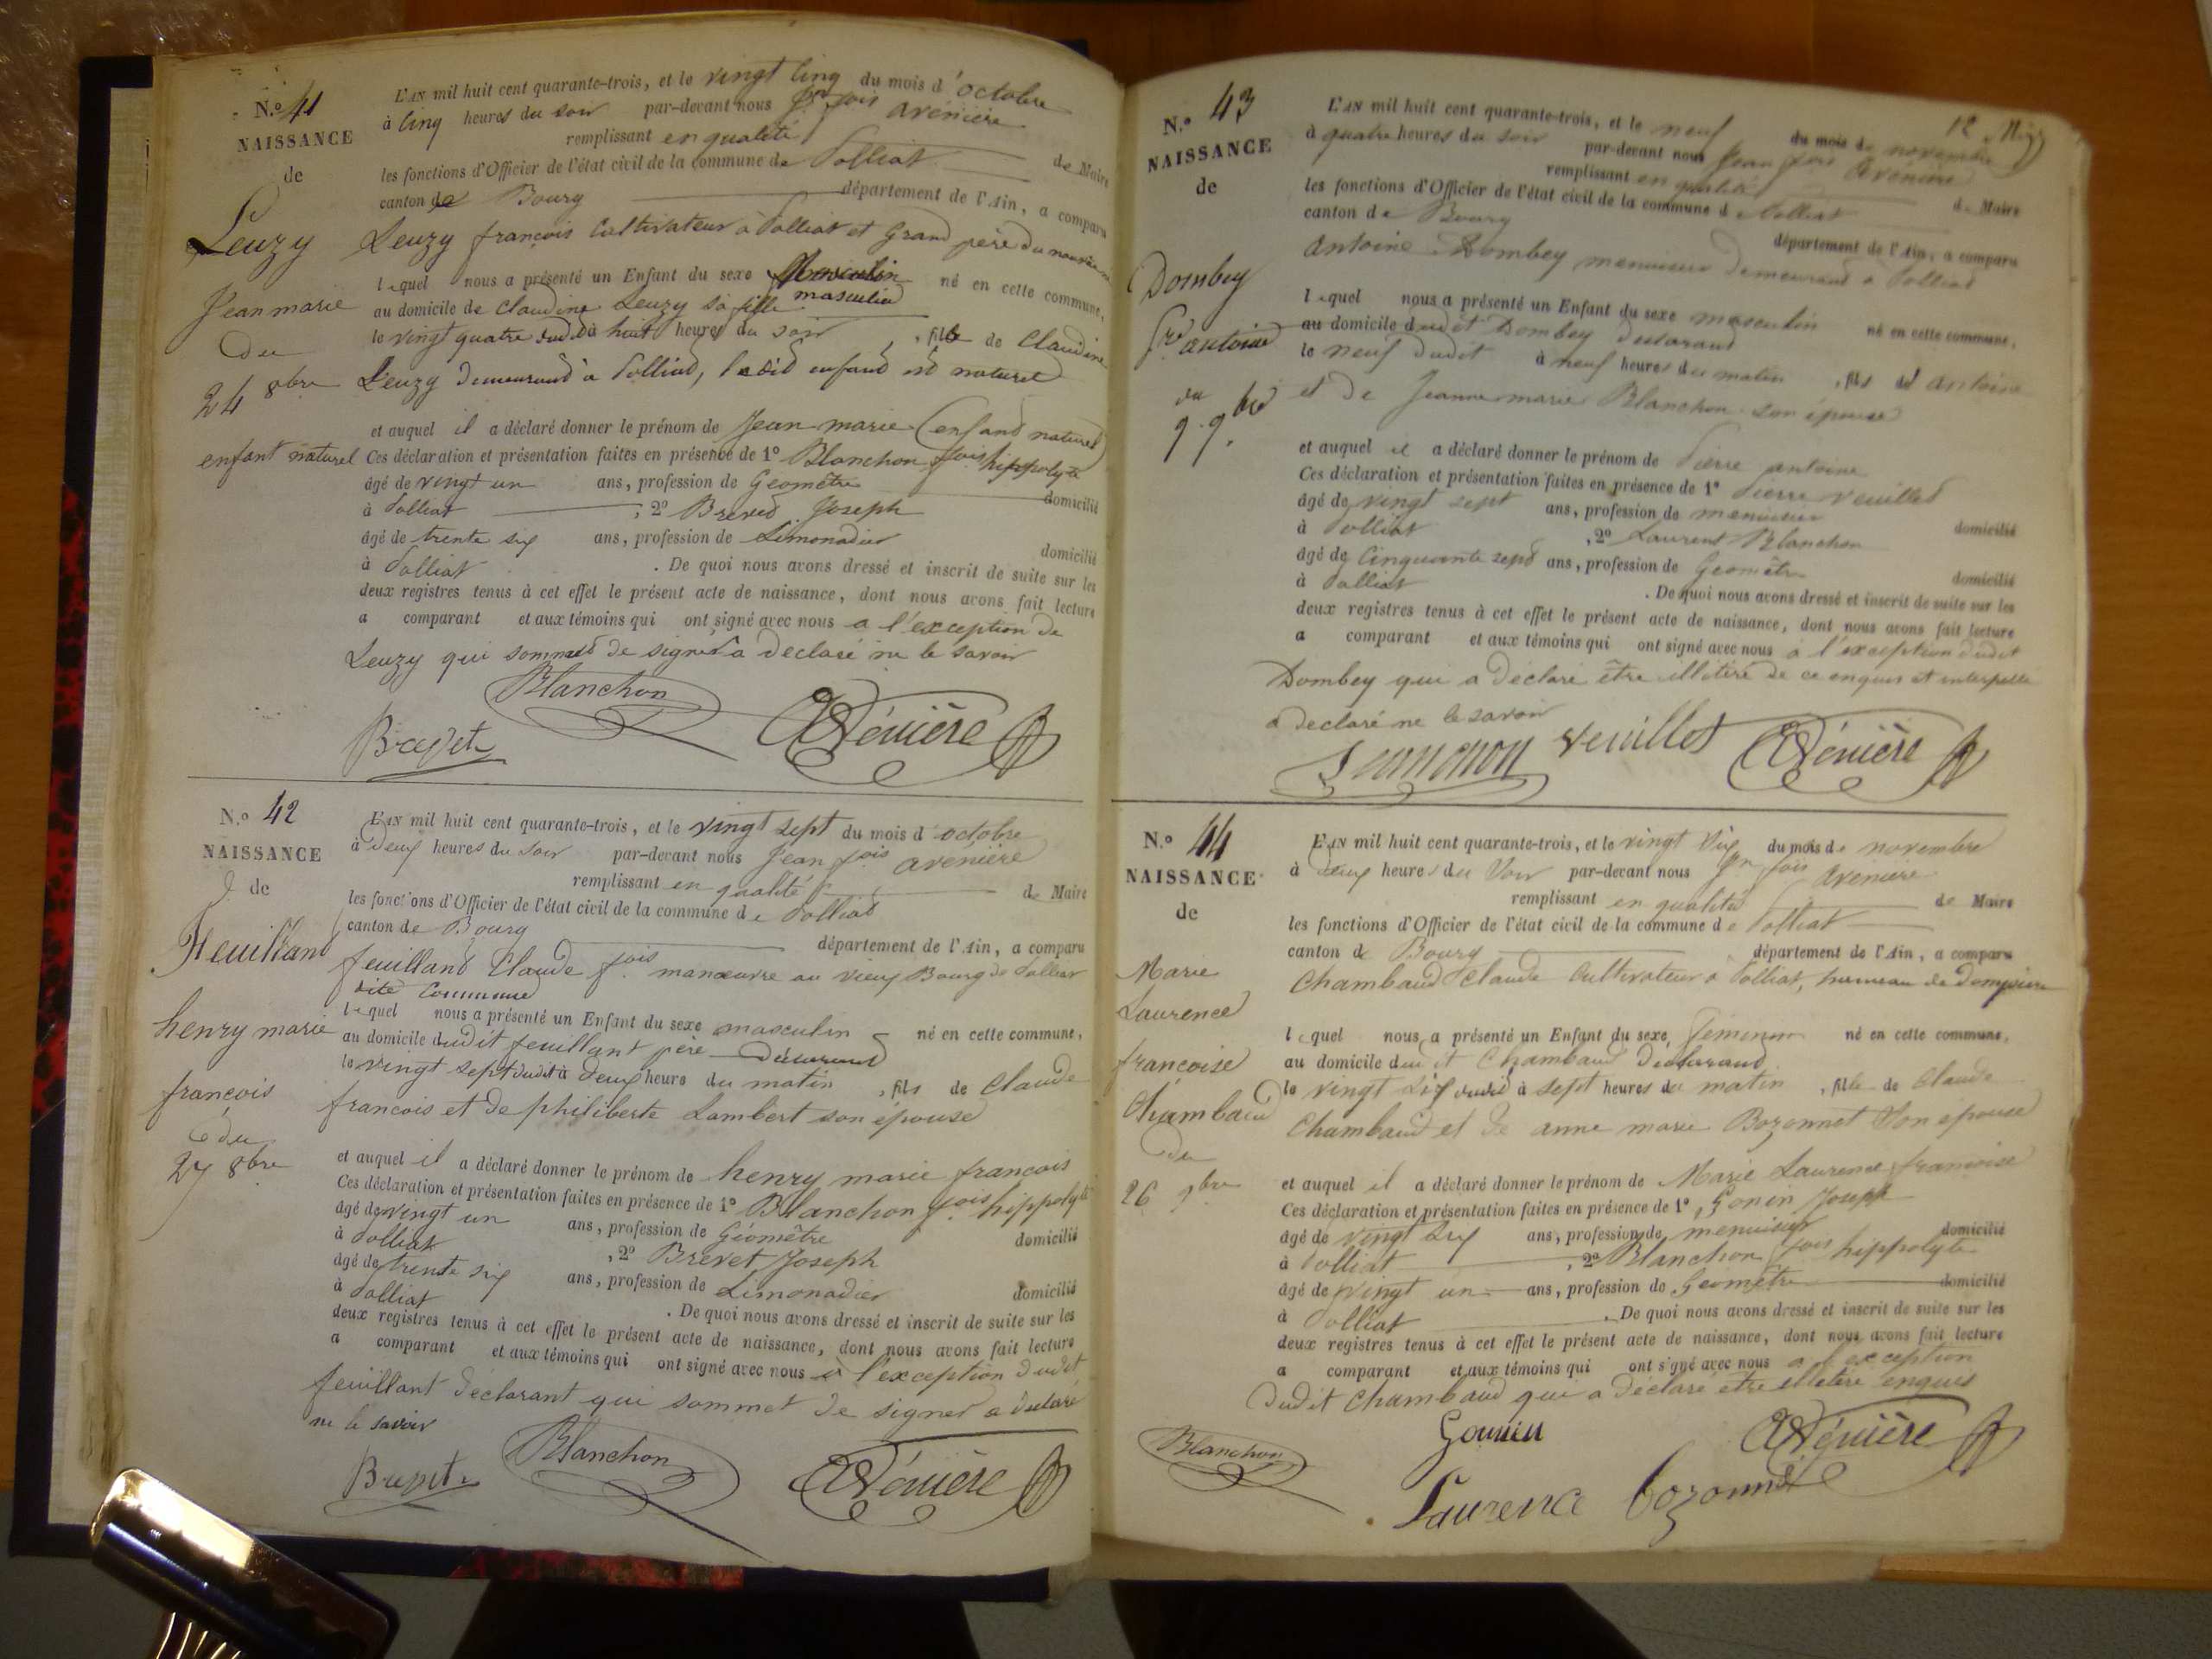 N.º 41
NAISSANCE
de
Leuzy
Jean marie
du
24 8bre
enfant naturel
L'AN mil huit cent quarante-trois, et le vingt cinq du mois d'octobre
à cinq heures du soir par-devant nous Jn fois avenière
remplissant en qualité de Maire
les fonctions d'Officier de l'état civil de la commune de Polliat
canton de Bourg département de l'Ain, a comparu
Leuzy françois Cultivateur à Polliat et Grand père du
lequel nous a présenté un Enfant du sexe masculin né en cette commune,
au domicile de Claudine Leuzy sa fille
le vingt quatre dudit à huit heures du soir, fils de Claudine
Leuzy demeurand à Polliad, ledid enfand est naturel
et auquel il a déclaré donner le prénom de Jean marie (enfand naturel)
Ces déclaration et présentation faites en présence de 1º Blanchon fois hippolyte
âgé de vingt un ans, profession de Géomètre domicilié
à Polliat ; 2º Breved Joseph
âgé de trente six ans, profession de Limonadier domicilié
à Polliat . De quoi nous avons dressé et inscrit de suite sur les
deux registres tenus à cet effet le présent acte de naissance, dont nous avons fait lecture
a comparant et aux témoins qui ont signé avec nous a l'exception de
Leuzy qui sommed de signer a déclaré ne le savoir
Blanchon
Brevet
Avénière
N.º 42
NAISSANCE
de
Feuilland
henry marie
françois
du
27 8bre
L'AN mil huit cent quarante-trois, et le vingt sept du mois d'octobre
à deux heures du soir par-devant nous Jean fois avenière
remplissant en qualité de Maire
les fonctions d'Officier de l'état civil de la commune de Polliat
canton de Bourg département de l'Ain, a comparu
feuilland Claude fois manœuvre au vieux Bourg de Polliat
dite Commune
lequel nous a présenté un Enfant du sexe masculin né en cette commune,
au domicile dudit feuillant père déclarand
le vingt sept dudit à deux heures du matin, fils de Claude
francois et de philiberte Lambert son épouse
et auquel il a déclaré donner le prénom de henry marie francois
Ces déclaration et présentation faites en présence de 1º Blanchon fois hippolyte
âgé de vingt un ans, profession de Géomètre domicilié
à Polliat , 2º Brevet Joseph
âgé de trente six ans, profession de Limonadier domicilié
à Polliat . De quoi nous avons dressé et inscrit de suite sur les
deux registres tenus à cet effet le présent acte de naissance, dont nous avons fait lecture
a comparant et aux témoins qui ont signé avec nous à l'exception dudit
feuillant déclarant qui sommet de signer a déclaré
ne le savoir
Brevet
Blanchon
Avénière
12
N.º 43
NAISSANCE
de
Dombey
Pre antoine
du
9. 9bre
L'AN mil huit cent quarante-trois, et le neuf du mois de novembre
à quatre heures du soir par-devant nous Jean fois avenière
remplissant en qualité de Maire
les fonctions d'Officier de l'état civil de la commune de Polliat
canton de Bourg département de l'Ain, a comparu
antoine Dombey menuisier demeurant à Polliat
lequel nous a présenté un Enfant du sexe masculin né en cette commune,
au domicile dudit Dombey déclarand
le neuf dudit à neuf heures du matin, fils d'antoine
et de Jeanne marie Blanchon son épouse
et auquel il a déclaré donner le prénom de Pierre antoine
Ces déclaration et présentation faites en présence de 1º Pierre veuilled
âgé de vingt sept ans, profession de menuisier domicilié
à Polliat , 2º Laurent Blanchon
âgé de Cinquante sept ans, profession de Géomètre domicilié
à Polliat . De quoi nous avons dressé et inscrit de suite sur les
deux registres tenus à cet effet le présent acte de naissance, dont nous avons fait lecture
a comparant et aux témoins qui ont signé avec nous à l'exception dudit
Dombey qui a déclaré être illitéré de ce enquis et interpellé
a déclaré ne le savoir
veuillet
Avénière
N.º 44
NAISSANCE
de
Marie
Laurence
françoise
Chambaud
du
26 9bre
L'AN mil huit cent quarante-trois, et le vingt six du mois de novembre
à deux heures du soir par-devant nous Jn fois avenière
remplissant en qualité de Maire
les fonctions d'Officier de l'état civil de la commune de Polliat
canton de Bourg département de l'Ain, a comparu
Chambaud Claude Cultivateur à Polliat, hameau de Dompierre
lequel nous a présenté un Enfant du sexe féminin né en cette commune,
au domicile dudit Chambaud déclarand
le vingt six dudit à sept heures du matin, fille de Claude
Chambaud et de anne marie Bozonnet son épouse
et auquel il a déclaré donner le prénom de Marie Laurence francoise
Ces déclaration et présentation faites en présence de 1º Gonin Joseph
âgé de vingt six ans, profession de menuisier domicilié
à Polliat , 2º Blanchon fois hippolyte
âgé de vingt un ans, profession de Géomètre domicilié
à Polliat . De quoi nous avons dressé et inscrit de suite sur les
deux registres tenus à cet effet le présent acte de naissance, dont nous avons fait lecture
a comparant et aux témoins qui ont signé avec nous a l'exception
dudit Chambaud qui a déclaré être illetéré enquis
Blanchon
Gonin
Avénière
Laurence bozonnet